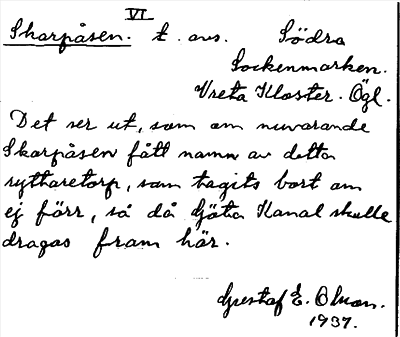 VI
Skarpåsen. t. avs. Södra
Sockenmarken.
Vreta Kloster. Ögl.
Det ser ut, som om nuvarande
Skarpåsen fått namn av detta
ryttaretorp, som tagits bort om
ej förr, så då Göta Kanal skulle
dragas fram här.
Gustaf E. Olson.
1937.